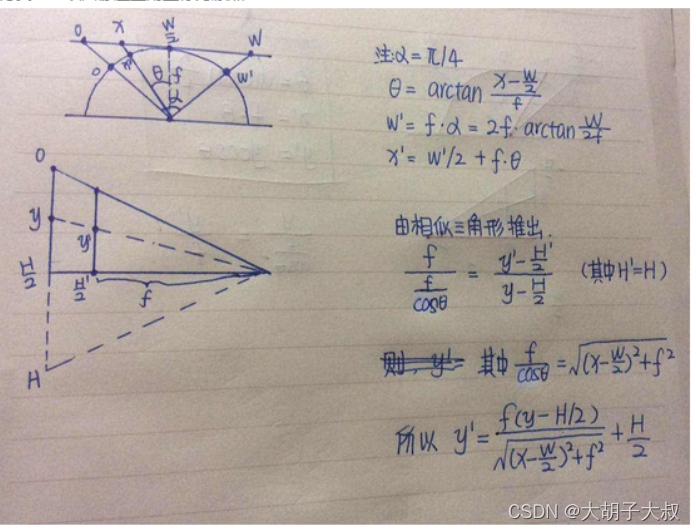 O x W/2 W
O x' θ f α W'
O
y y'
H/2 H'/2 f
H
注:α=π/4
θ = arctan (x-W/2)/f
W' = f·α = 2f·arctan W/2f
x' = W'/2 + f·θ
由相似三角形推出.
f/(f/cosθ) = (y'-H'/2)/(y-H/2) (其中H'=H)
则, y'= 其中 f/cosθ = √((x-W/2)²+f²)
所以 y' = f(y-H/2)/√((x-W/2)²+f²) + H/2
CSDN @大胡子大叔